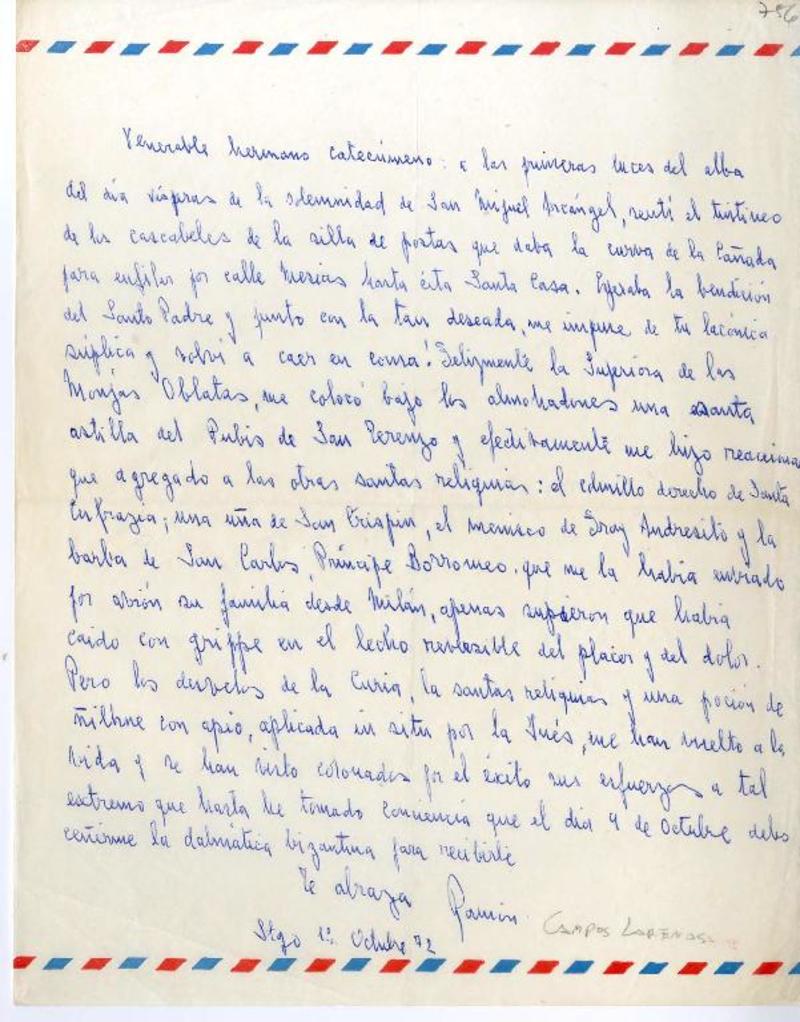 756
Venerable hermano catecúmeno: a las primeras luces del alba
del día vísperas de la solemnidad de San Miguel Arcángel, sentí el tintineo
de los cascabeles de la silla de postas que daba la curva de la Cañada
para enfilar por calle Mesías hasta ésta Santa Casa. Esperaba la bendición
del Santo Padre y junto con la tan deseada, me impuse de tu lacónica
súplica y volví a caer en coma! Felizmente la Superiora de las
Monjas Oblatas, me colocó bajo los almohadones una santa
astilla del Pubis de San Terenzo y efectivamente me hizo reaccionar
que agregado a las otras santas reliquias: el colmillo derecho de Santa
Eufrazia; una uña de San Crispin, el menisco de Fray Andresito y la
barba de San Carlos, Príncipe Borromeo. que me la había enviado
por avión su familia desde Milán, apenas supieron que había
caido con grippe en el lecho reversible del placer y del dolor.
Pero los desvelos de la Curia, la santas reliquias y una poción de
ñilhue con apio, aplicada in situ por la Inés, me han vuelto a la
vida y se han visto coronados por el éxito sus esfuerzos a tal
extremo que hasta he tomado conciencia que el dia 9 de Octubre debo
ceñirme la dalmática bizantina para recibirle
Te abraza Ramón.
CAMPOS LARENAS
Stgo 1º Octubre 72